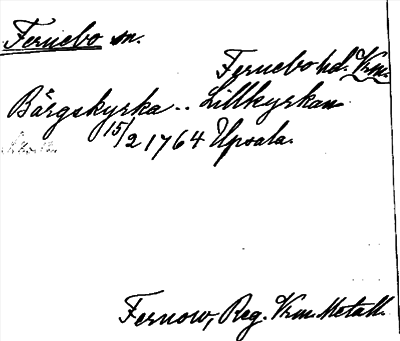 Fernebo sn.
Fernebo hd. Vrm.
Bärgskyrka .. Lillkyrkan
15/2 1764 Upsala.
Fernow, Reg. Vrm. Metall.